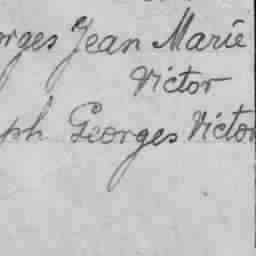 orges Jean Marie
Victor
ph Georges Victor